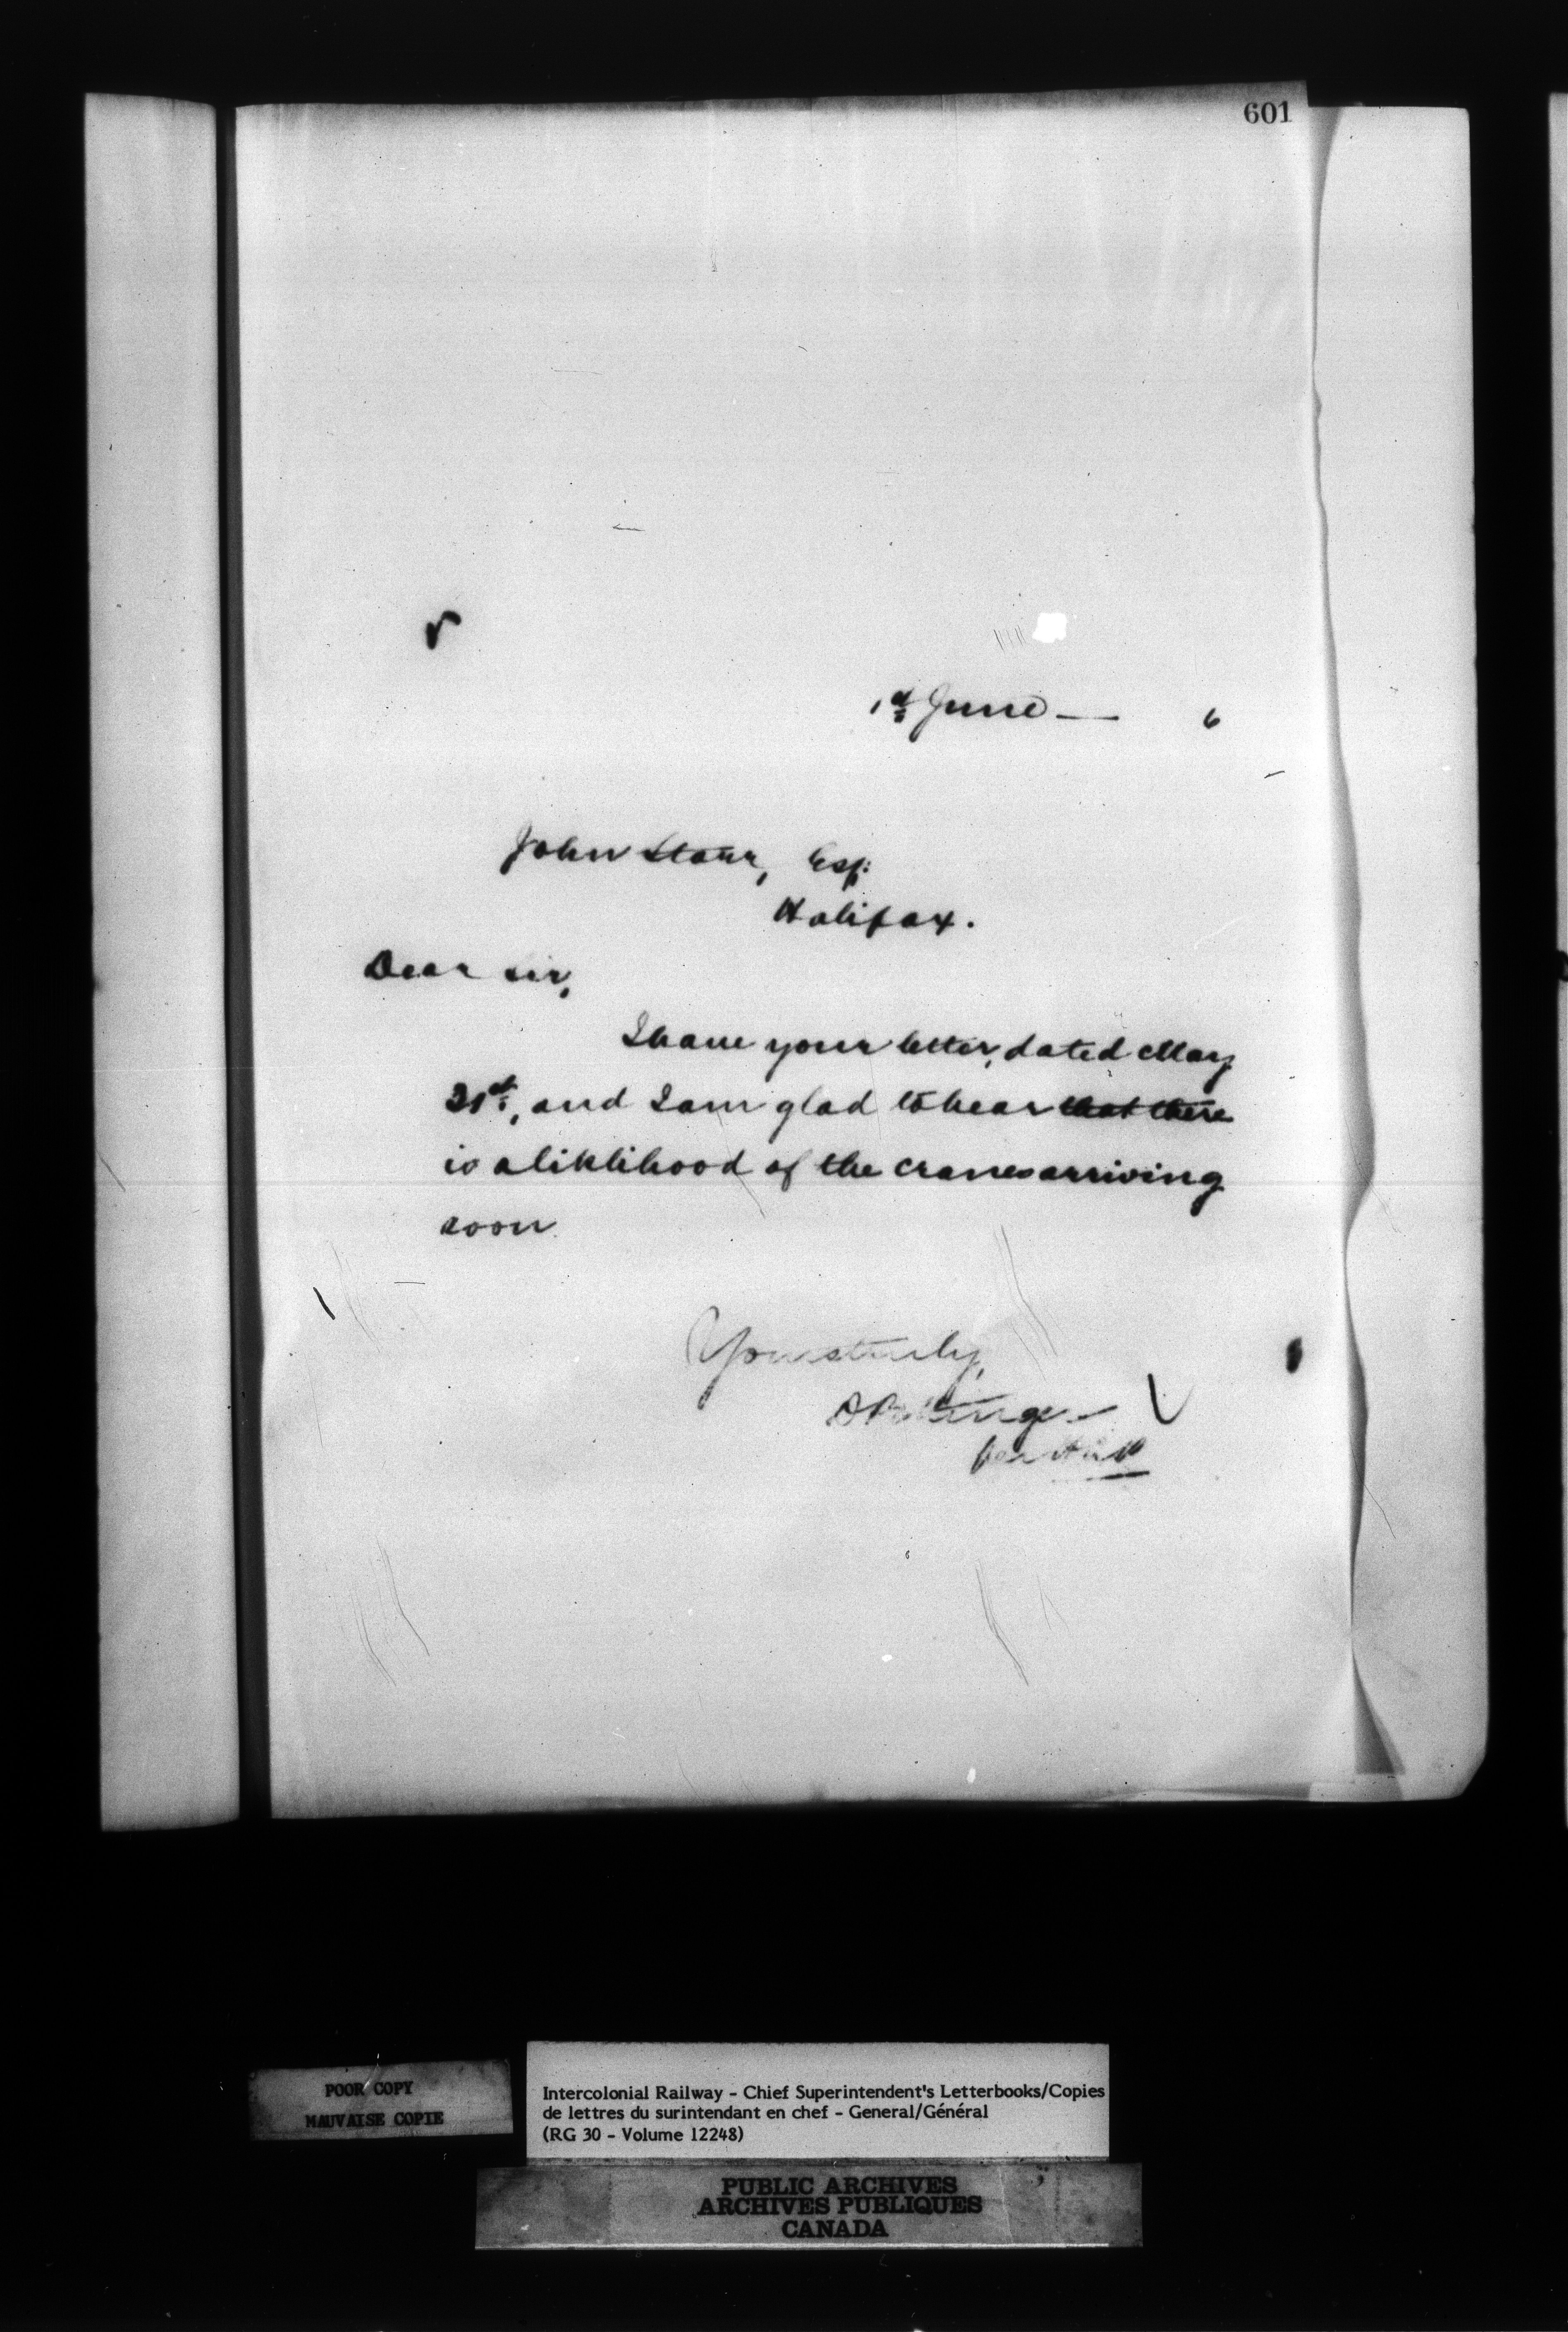 601
1st June — 6
John Starr, Esq:
Halifax.
Dear Sir,
I have your letter, dated May
31st, and I am glad to hear that there
is a liklihood of the cranes arriving
soon.
Yours truly,
D Pottinger
per
POOR COPY
MAUVAISE COPIE
Intercolonial Railway - Chief Superintendent's Letterbooks/Copies
de lettres du surintendant en chef - General/Général
(RG 30 - Volume 12248)
PUBLIC ARCHIVES
ARCHIVES PUBLIQUES
CANADA